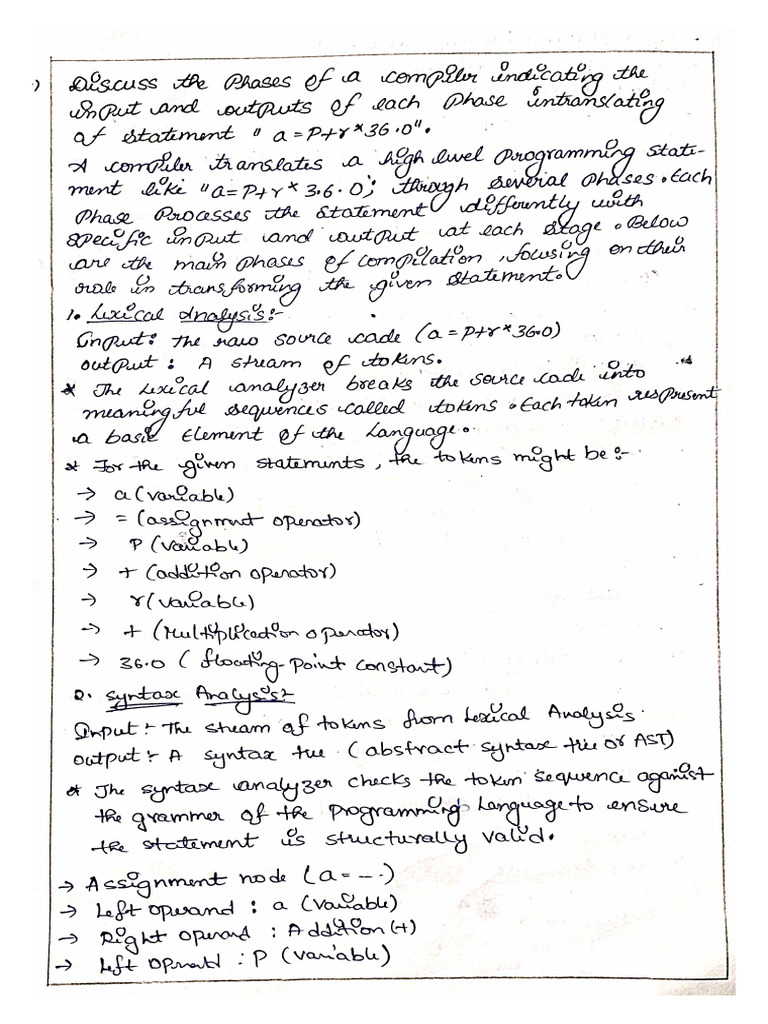 1) Discuss the Phases of a compiler indicating the
input and outputs of each Phase intranslating
of statement "a=P+r*36.0".
A compiler translates a high level Programming State-
ment like "a=P+r* 3.6.0"; through several Phases. Each
Phase Processes the Statement differently with
Specific input and output at each Stage. Below
are the main Phases of compilation, focusing on their
role in transforming the given Statement.
1. Lexical Analysis:-
Input: The raw source code (a=P+r*36.0)
output: A stream of tokens.
* The Lexical analyzer breaks the source code into
meaningful sequences called tokens. Each token respresent
a basic Element of the Language.
* For the given statements, the tokens might be:-
→ a (variable)
→ = (assignment operator)
→ P (variable)
→ + (addition operator)
→ r (variable)
→ + (Multiplication operator)
→ 36.0 (floating-point constant)
2. Syntax Analysis:-
Input:- The stream of tokens from Lexical Analysis.
output:- A syntax tree (abstract syntax tree or AST)
* The syntax analyzer checks the token sequence against
the grammer of the Programming Language to ensure
the statement is structurally valid.
→ Assignment node (a= --.)
→ Left operand : a (variable)
→ Right operand : Addition (+)
→ Left operand : P (variable)